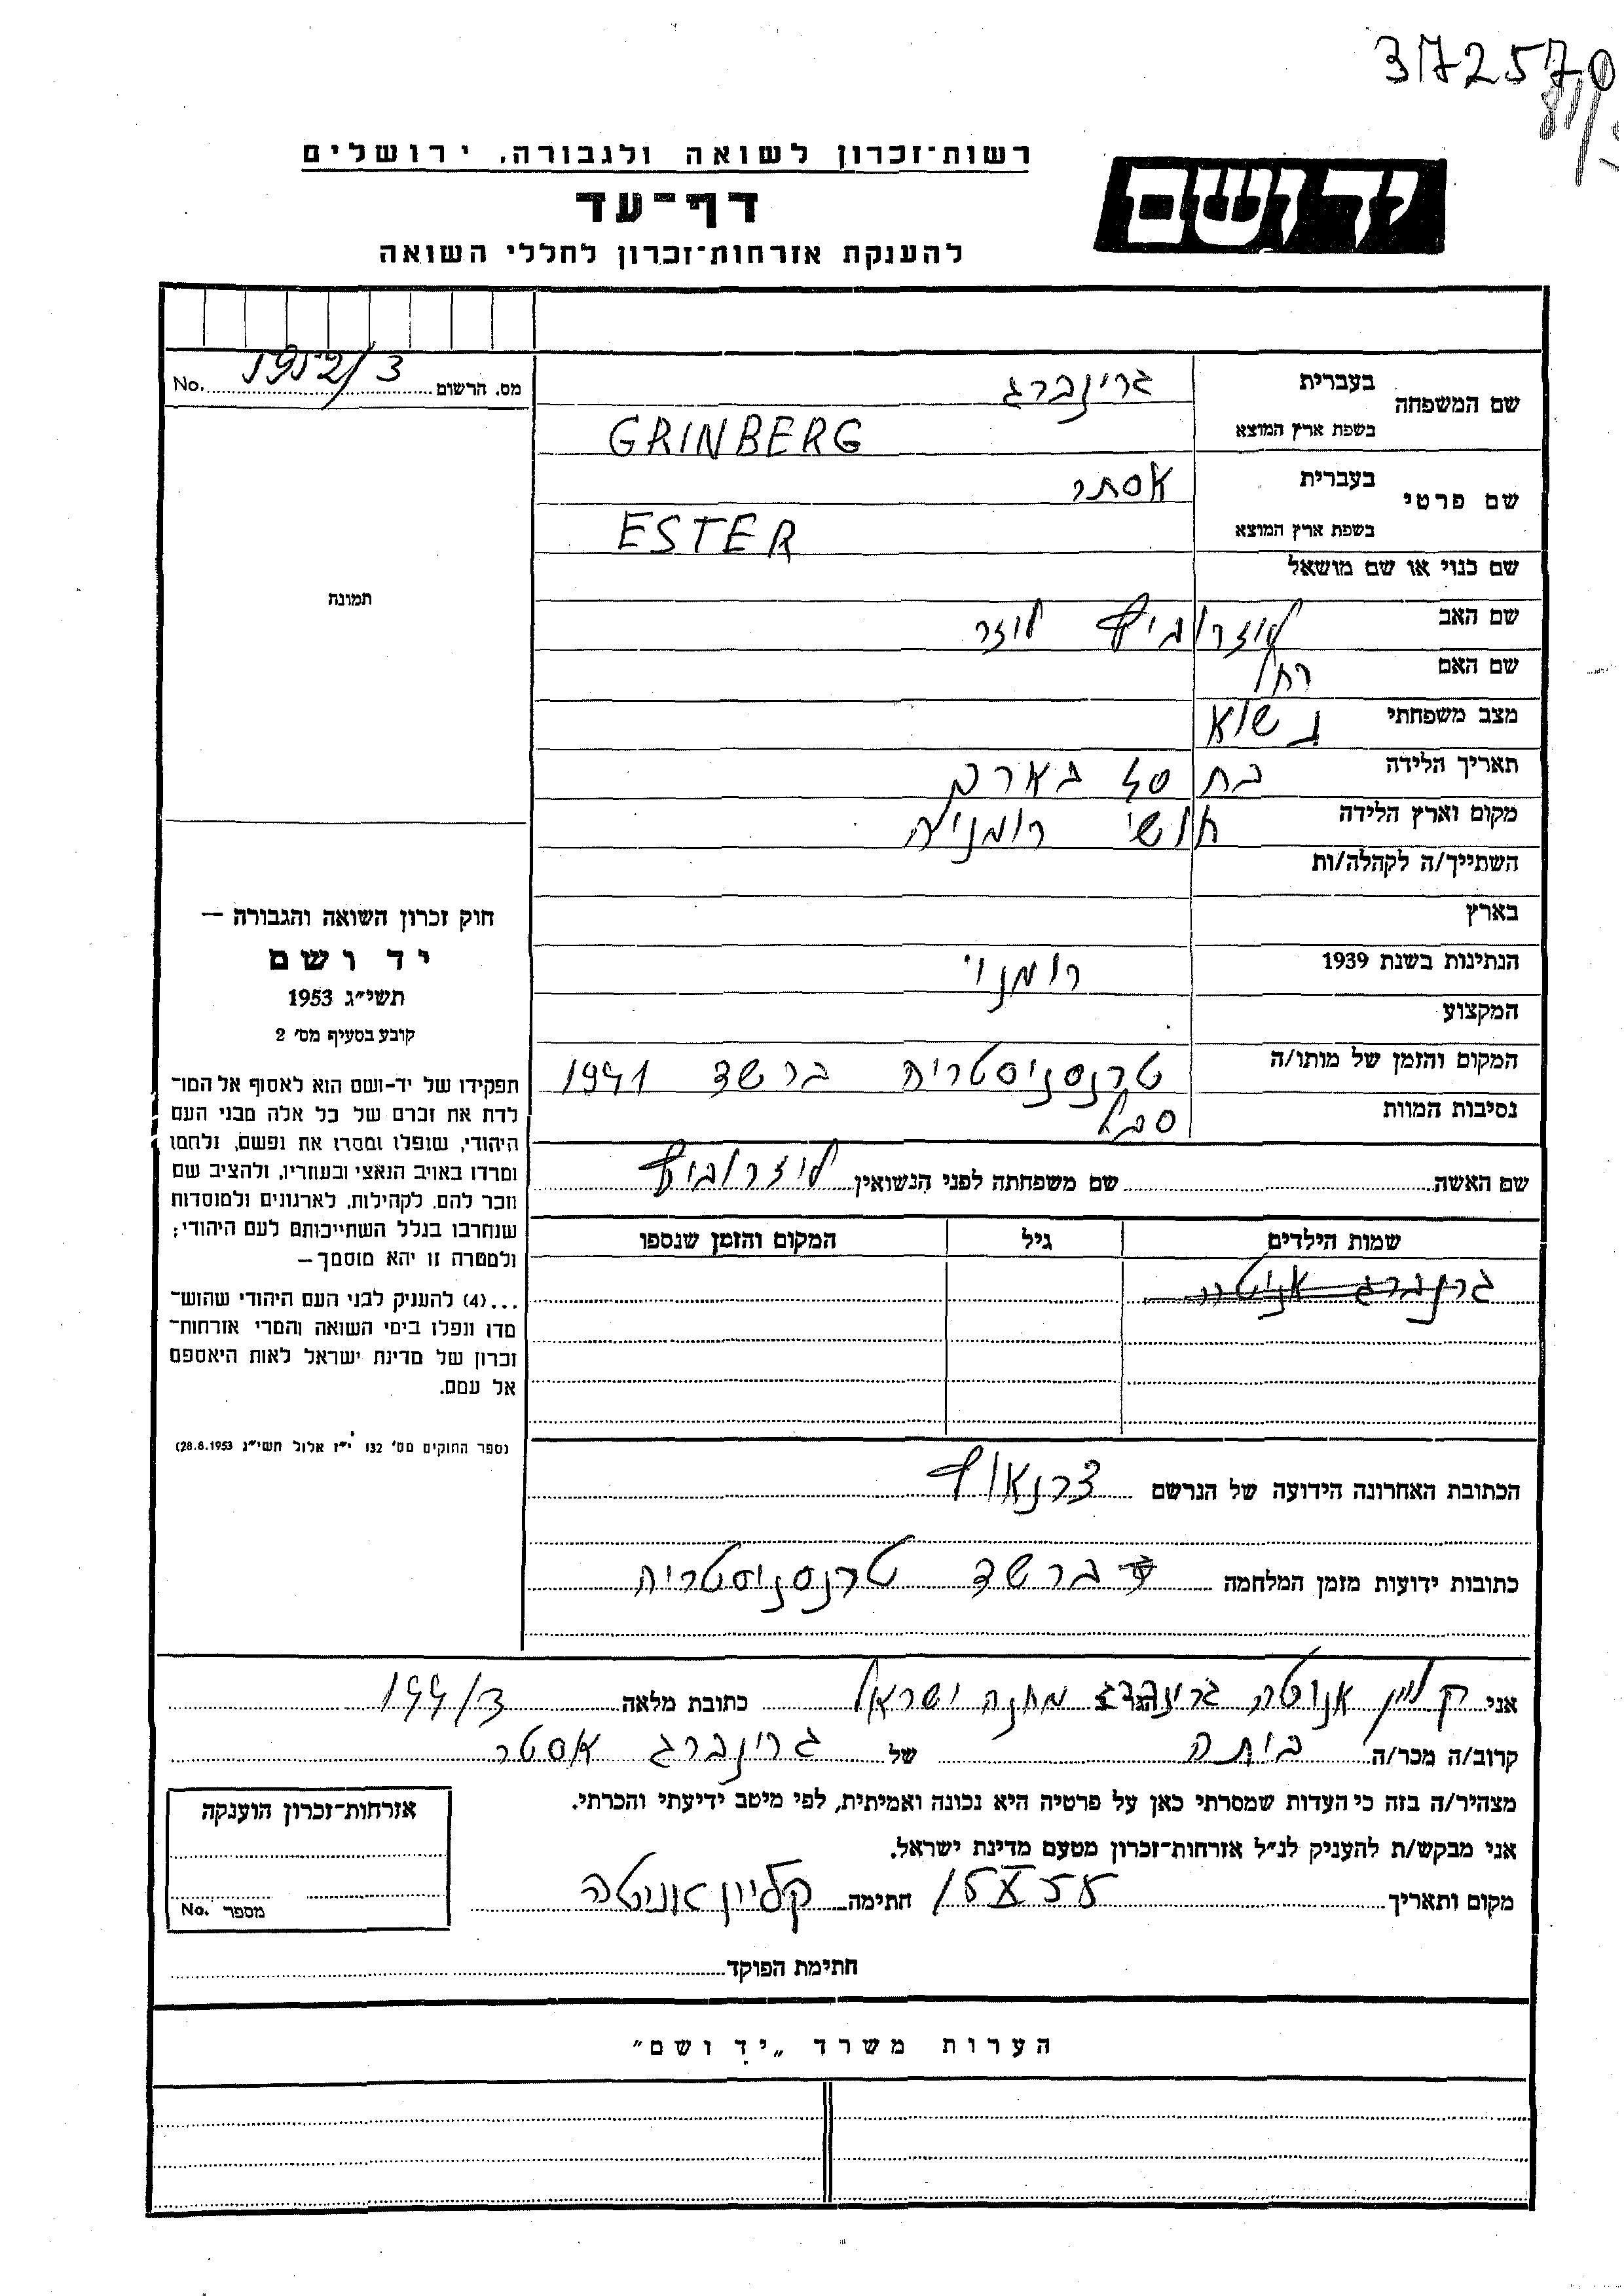 3172570
רשות־זכרון לשואה ולגבורה, ירושלים
ידושם
דף־עד
להענקת אזרחות־זכרון לחללי השואה
מס. הרשום 1952/3 No.
שם המשפחה
בעברית גרינברג
בשפת ארץ המוצא GRINBERG
שם פרטי
בעברית אסתר
בשפת ארץ המוצא ESTER
שם כנוי או שם מושאל
שם האב לוזרוביץ לוזר
שם האם רחל
מצב משפחתי נשוא
תאריך הלידה בת 40 בארך
מקום וארץ הלידה חושי רומניה
השתייך/ה לקהלה/ות
בארץ
הנתינות בשנת 1939 רומני
המקצוע
המקום והזמן של מותו/ה טרנסניסטריה ברשד 1941
נסיבות המוות סבל
שם האשה שם משפחתה לפני הנשואין לוזרוביץ
שמות הילדים גיל המקום והזמן שנספו
גרנברג אניטה
הכתובת האחרונה הידועה של הנרשם צרנאוץ
כתובות ידועות מזמן המלחמה ברשד טרנסניסטריה
תמונה
חוק זכרון השואה והגבורה —
יד ושם
תשי״ג 1953
קובע בסעיף מס׳ 2
תפקידו של יד-ושם הוא לאסוף אל המו־
לדת את זכרם של כל אלה מבני העם
היהודי, שנפלו ומסרו את נפשם, נלחמו
ומרדו באויב הנאצי ובעוזריו, ולהציב שם
וזכר להם, לקהילות, לארגונים ולמוסדות
שנחרבו בגלל השתייכותם לעם היהודי;
ולמטרה זו יהא מוסמך —
...(4) להעניק לבני העם היהודי שהוש־
מדו ונפלו בימי השואה והמרי אזרחות־
זכרון של מדינת ישראל לאות היאספם
אל עמם.
(ספר החוקים מס׳ 132 י״ז אלול תשי״ג 28.8.1953)
אני קליין אניטה מחנה ישראל כתובת מלאה 199/3
קרוב/ה מכר/ה ביתה של גרינברג אסטר
מצהיר/ה בזה כי העדות שמסרתי כאן על פרטיה היא נכונה ואמיתית, לפי מיטב ידיעתי והכרתי.
אני מבקש/ת להעניק לנ״ל אזרחות־זכרון מטעם מדינת ישראל.
מקום ותאריך 15 X 55 חתימה קליין אניטה
חתימת הפוקד
אזרחות־זכרון הוענקה
מספר No.
הערות משרד „יד ושם״